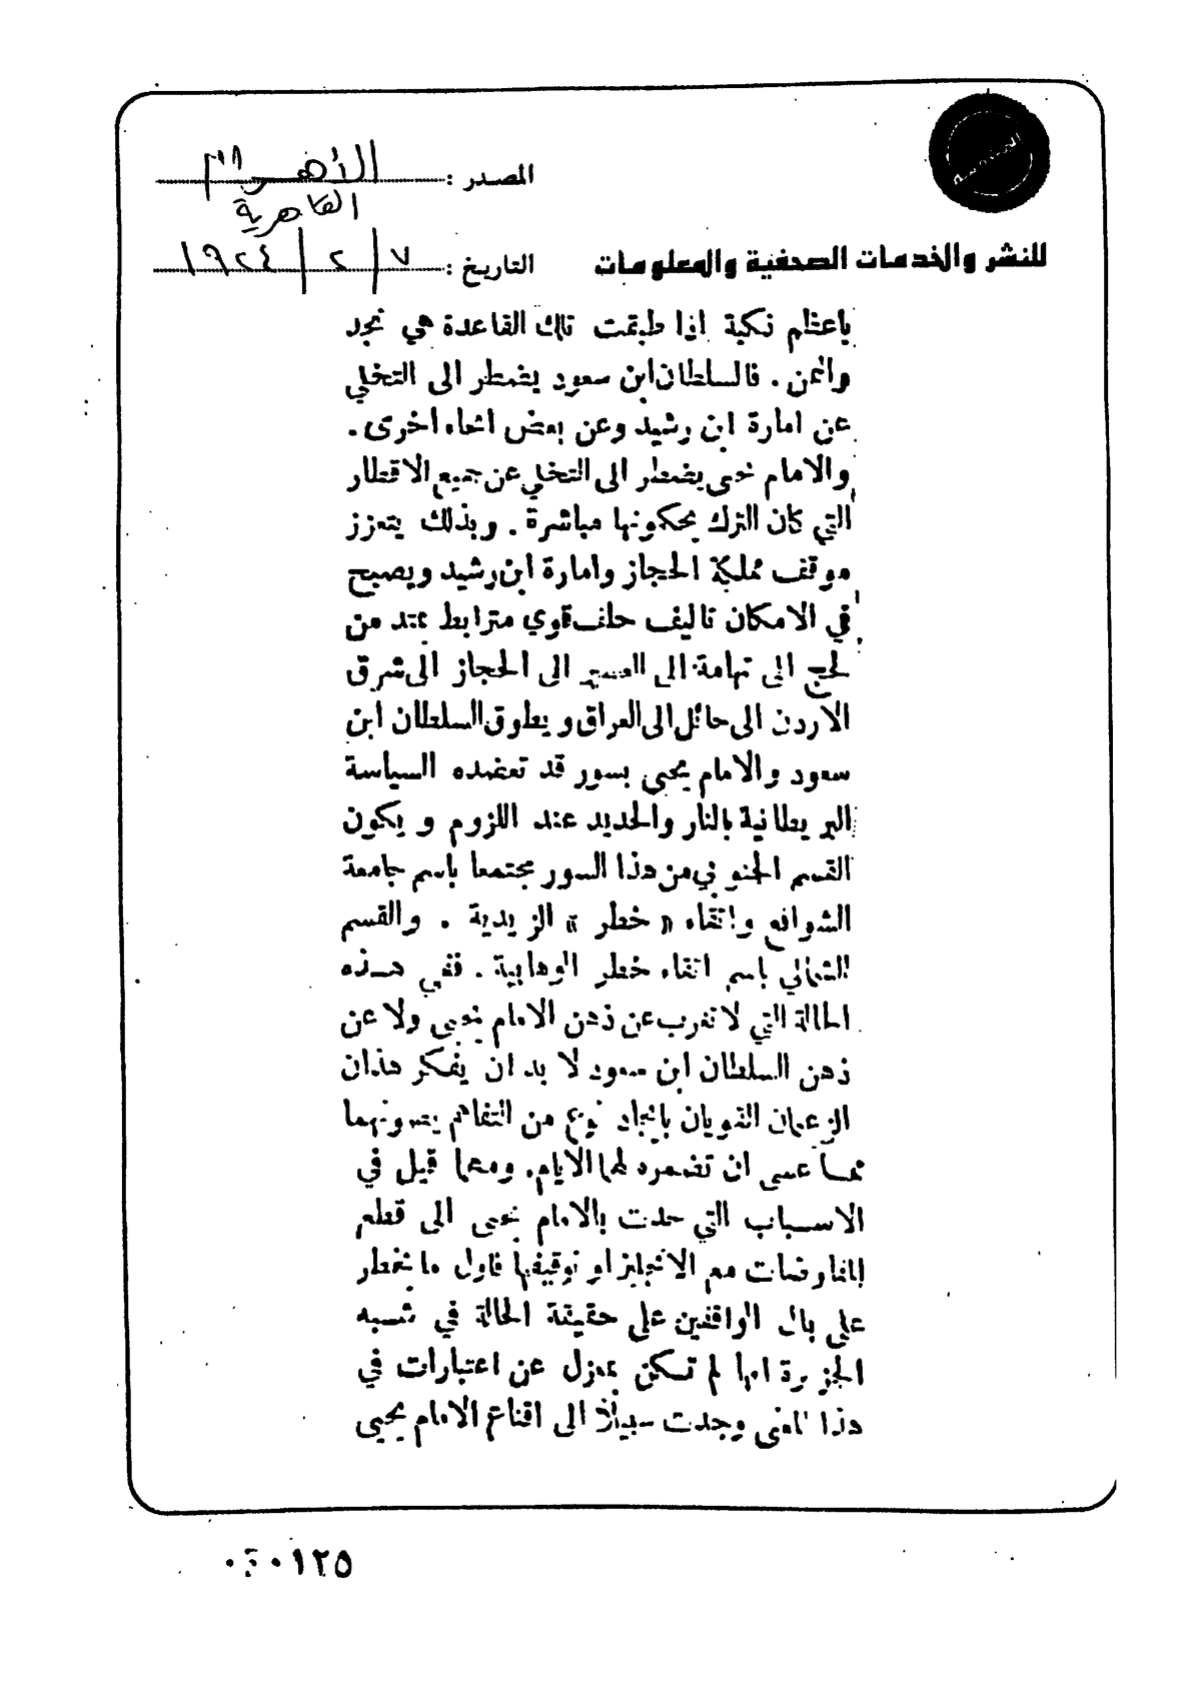 المصدر : الأهرام
القاهرية
للنشر والخدمات الصحفية والمعلومات
التاريخ : ٧ / ٢ / ١٩٢٤
باعظم نكبة اذا طبقت تلك القاعدة هي نجد
واليمن . فالسلطان ابن سعود يضطر الى التخلي
عن امارة ابن رشيد وعن بعض انحاء اخرى .
والامام يحيى يضطر الى التخلي عن جميع الاقطار
التي كان الترك يحكونها مباشرة . وبذلك يتعزز
موقف مملكة الحجاز وامارة ابن رشيد ويصبح
في الامكان تاليف حلف قوي مترابط يمتد من
لحج الى تهامة الى العسير الى الحجاز الى شرق
الاردن الى حائل الى العراق ويطوق السلطان ابن
سعود والامام يحيى بسور قد تعضده السياسة
البريطانية بالنار والحديد عند اللزوم ويكون
القسم الجنوبي من هذا السور مجتمعا باسم جامعة
الشوافع واتقاء « خطر » الزيدية . والقسم
الشمالي باسم اتقاء خطر الوهابية . ففي هذه
الحالة التي لا تغرب عن ذهن الامام يحيى ولا عن
ذهن السلطان ابن سعود لا بد ان يفكر هذان
الزعيمان القويان بايجاد نوع من التفاهم يصونهما
مما عسى ان تضمره لهما الايام. ومهما قيل في
الاسباب التي حدت بالامام يحيى الى قطع
المفاوضات مع الانجليز او توقيفها فاول ما يخطر
على بال الواقفين على حقيقة الحالة في شبه
الجزيرة انها لم تكن بمعزل عن اعتبارات في
هذا المعنى وجدت سبيلا الى اقناع الامام يحيى